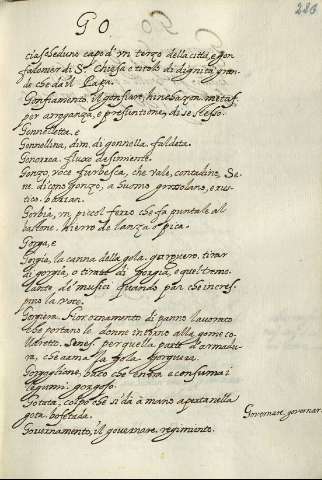 GO.
286
ciascheduno capo d' un terzo della città, e gon
falonier di S. Chiesa e titolo di dignità gran
de che dà il Papa.
Gonfiamento. il gonfiare, hinchazon. metaf.
per arroganza, e presuntione, di se stesso.
Gonnelletta, e
Gonnellina, dim. di gonnella. faldeta.
Gonorrea. fluxo
Gonzo, voce furbesca, che vale, contadino, Se
ne. dicono gonzo, a huomo grossolano, e rus
tico.
Gorbia, un piccol ferro che fa puntale al
bastone. hierro de lanza o pica.
Gorga, e
Gorgia, la canna della gola, garguero, tirar
di gorgia, o tirate di gorgia, è quel tremo
lante de' musici quando par che incres
pino la voce.
Gorgiera. fior ornamento di panno lavorato
che portano le donne intorno alla gome co
lleretto. Senes. per quella parte d'armadu
ra, che arma la gola. Gorguera.
Gorgoglione, baco che entra e consuma i
legumi. gorgojo.
Gotata, colpo che si dà a mano aperta nella
gota. bofetada.
Governamento, il governare, regimiento.
Governare, governar.